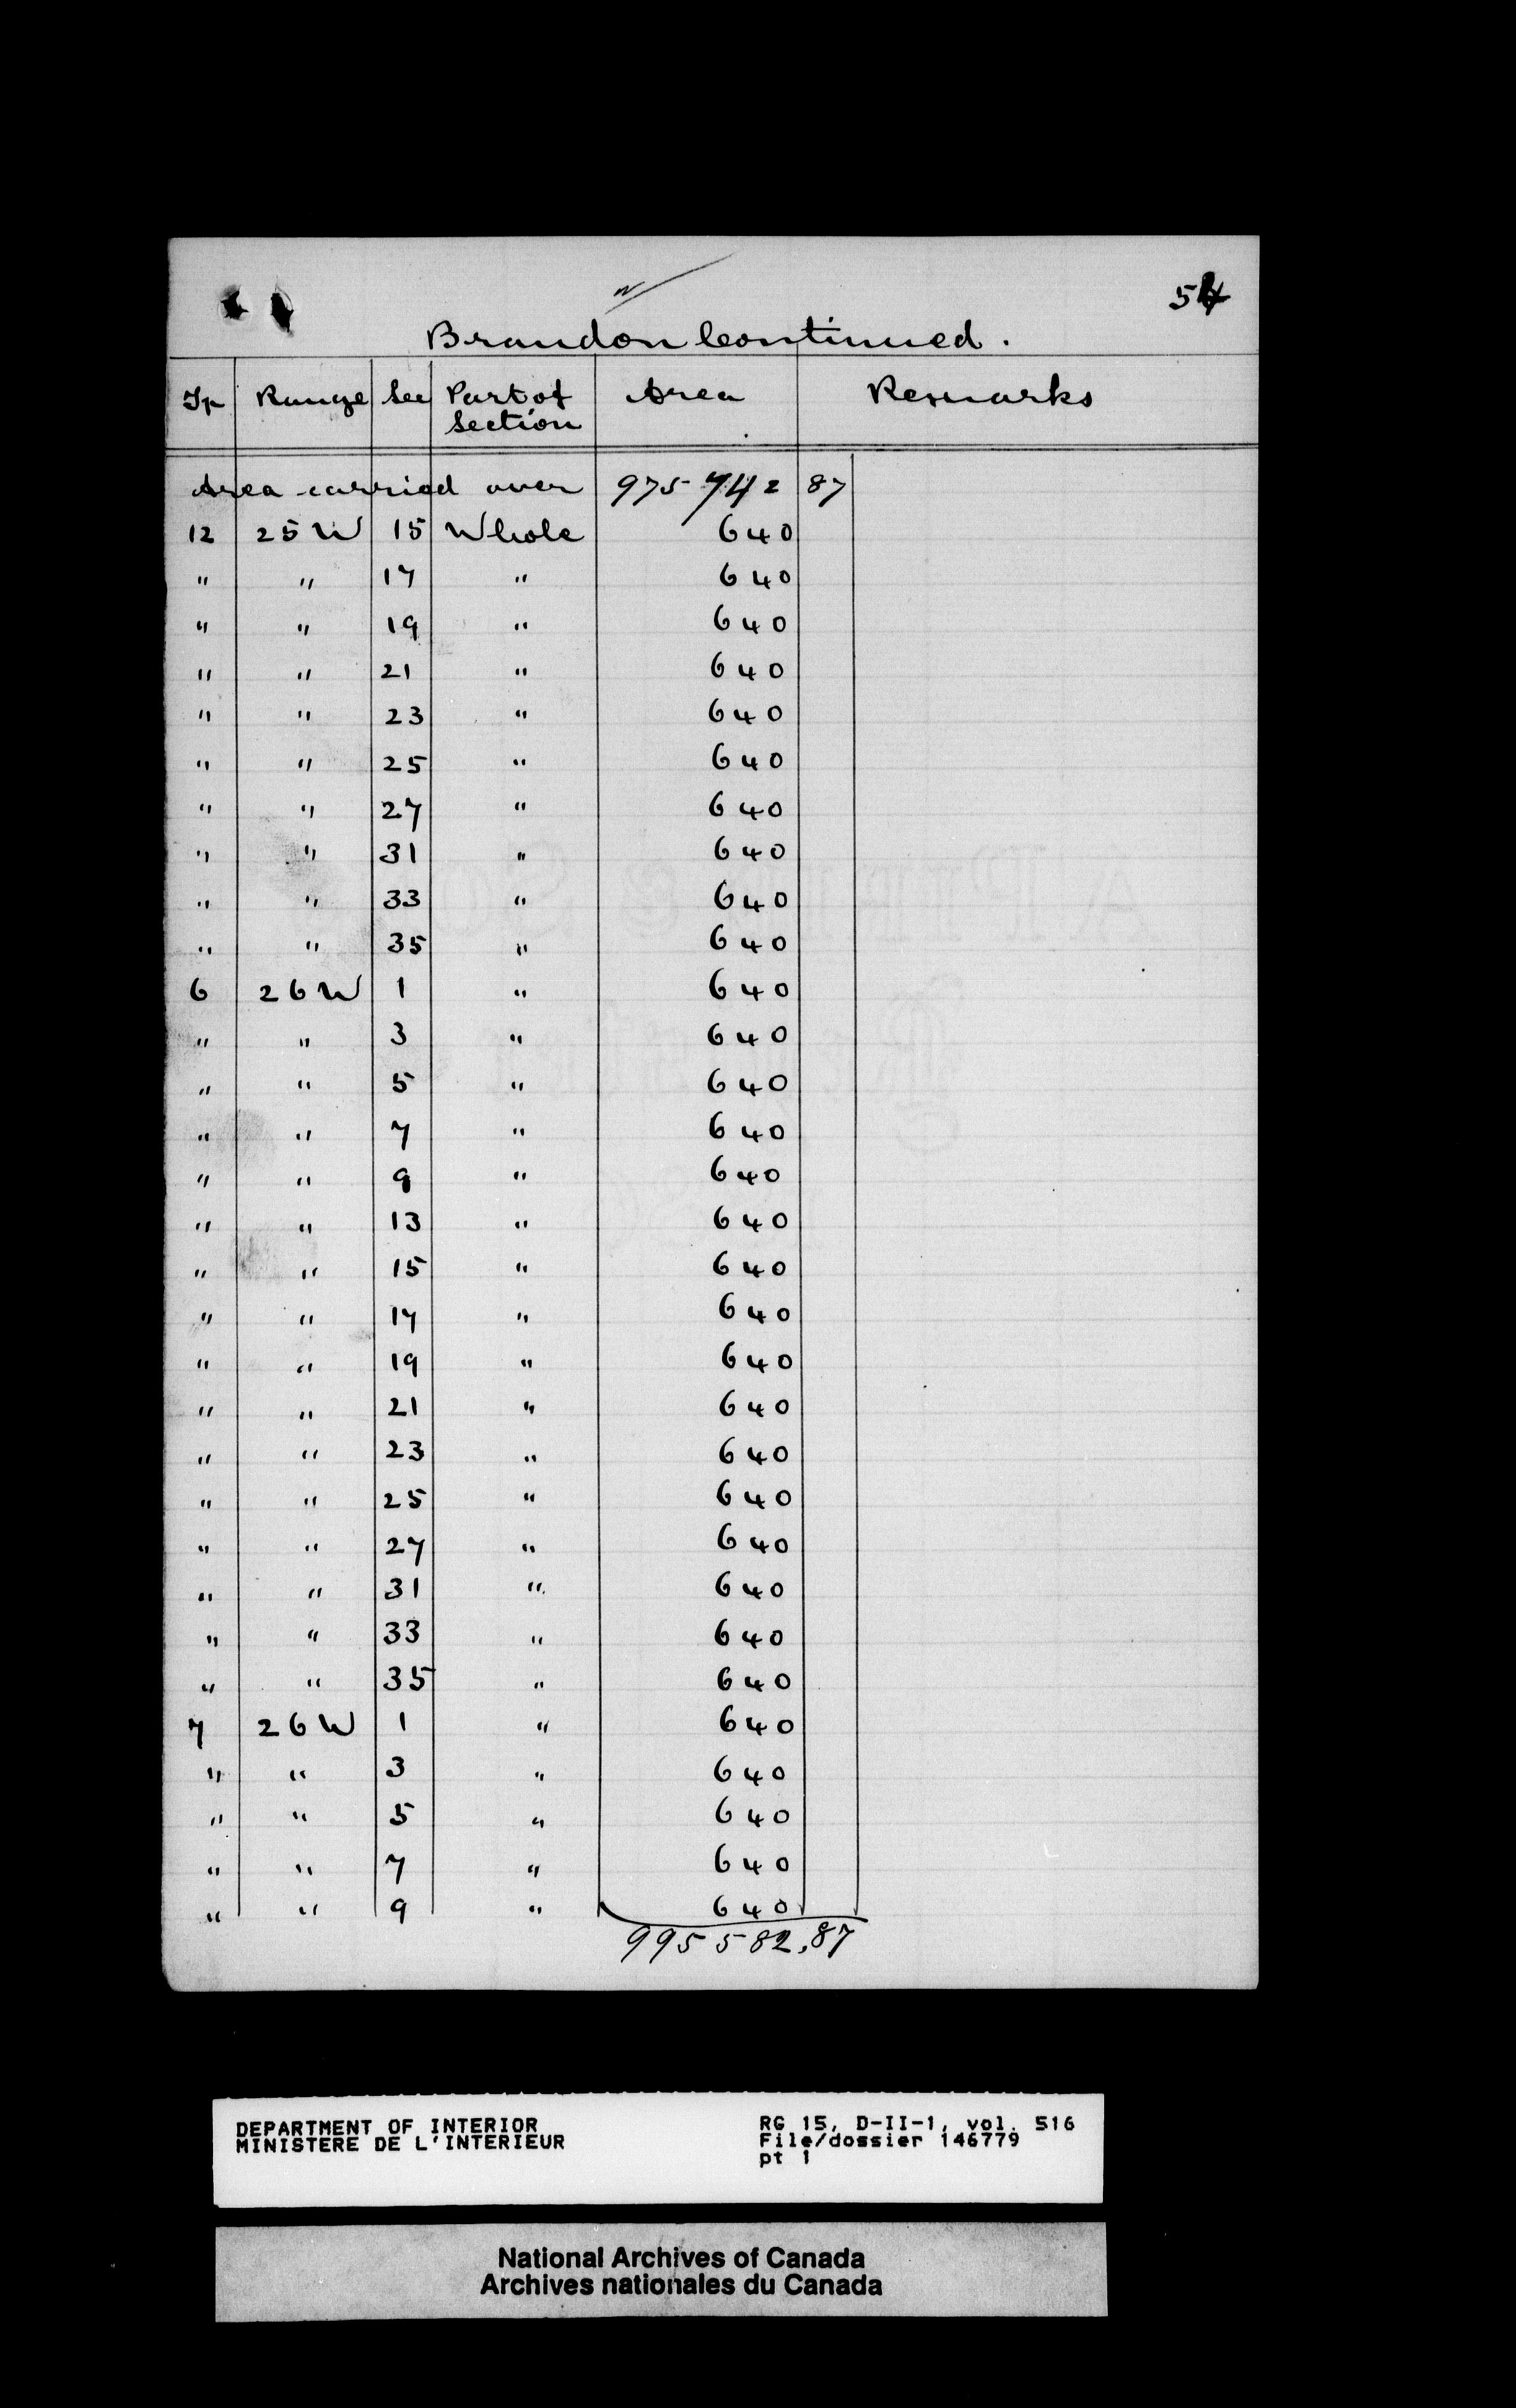 54
Brandon Continued.
Tp Range Sec Part of Section Area Remarks
Area carried over 975 742 87
12 25 W 15 Whole 640
" " 17 " 640
" " 19 " 640
" " 21 " 640
" " 23 " 640
" " 25 " 640
" " 27 " 640
" " 31 " 640
" " 33 " 640
" " 35 " 640
6 26 W 1 " 640
" " 3 " 640
" " 5 " 640
" " 7 " 640
" " 9 " 640
" " 13 " 640
" " 15 " 640
" " 17 " 640
" " 19 " 640
" " 21 " 640
" " 23 " 640
" " 25 " 640
" " 27 " 640
" " 31 " 640
" " 33 " 640
" " 35 " 640
7 26 W 1 " 640
" " 3 " 640
" " 5 " 640
" " 7 " 640
" " 9 " 640
995 582.87
DEPARTMENT OF INTERIOR
MINISTERE DE L'INTERIEUR
RG 15, D-II-1, vol. 516
File/dossier 146779
pt 1
National Archives of Canada
Archives nationales du Canada